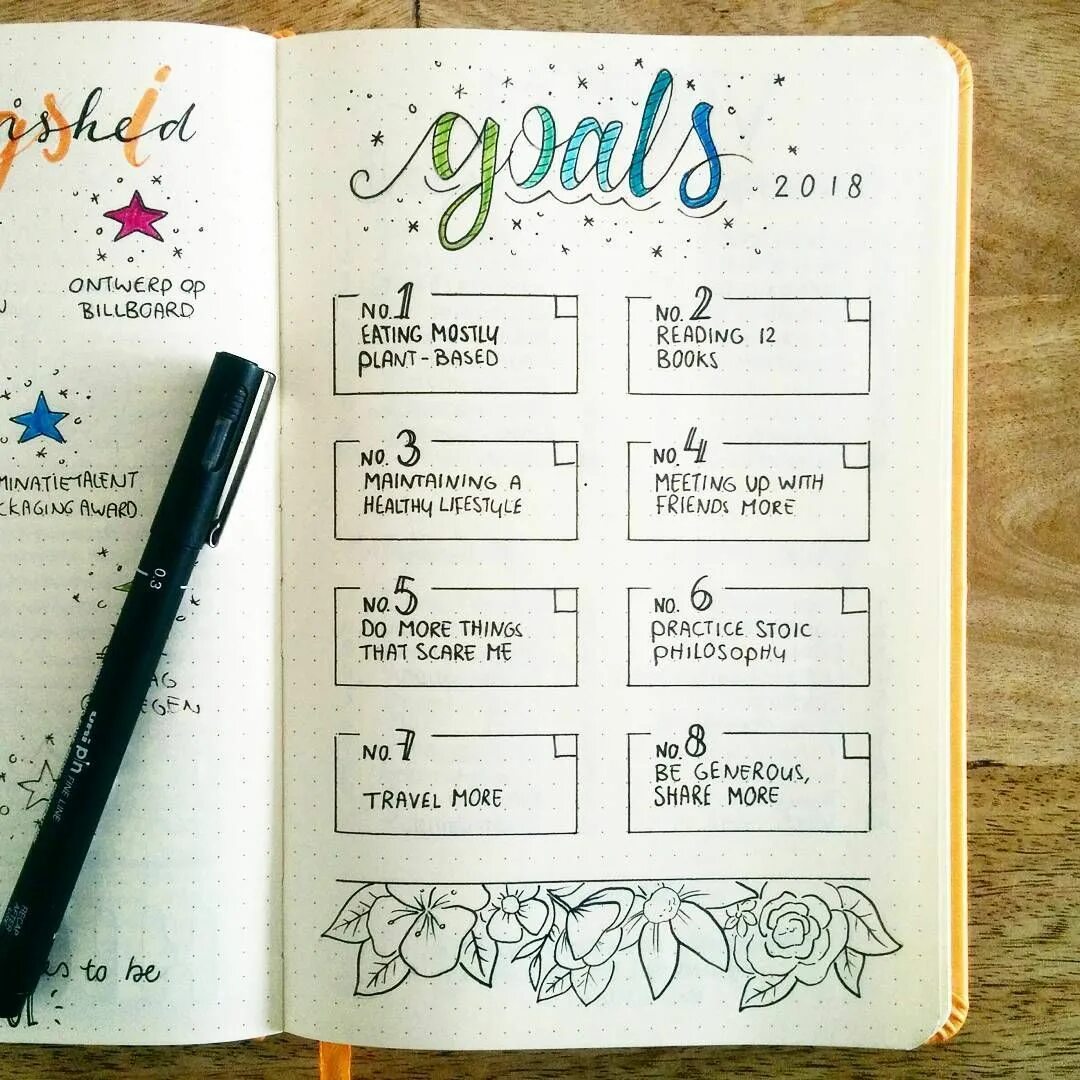 ONTWERP OP
BILLBOARD
to be
0.3
uni pin FINE LINE
goals
2018
NO. 1
EATING MOSTLY
PLANT-BASED
NO. 2
READING 12
BOOKS
NO. 3
MAINTAINING A
HEALTHY LIFESTYLE
NO. 4
MEETING UP WITH
FRIENDS MORE
NO. 5
DO MORE THINGS
THAT SCARE ME
NO. 6
PRACTICE STOIC
PHILOSOPHY
NO. 7
TRAVEL MORE
NO. 8
BE GENEROUS,
SHARE MORE